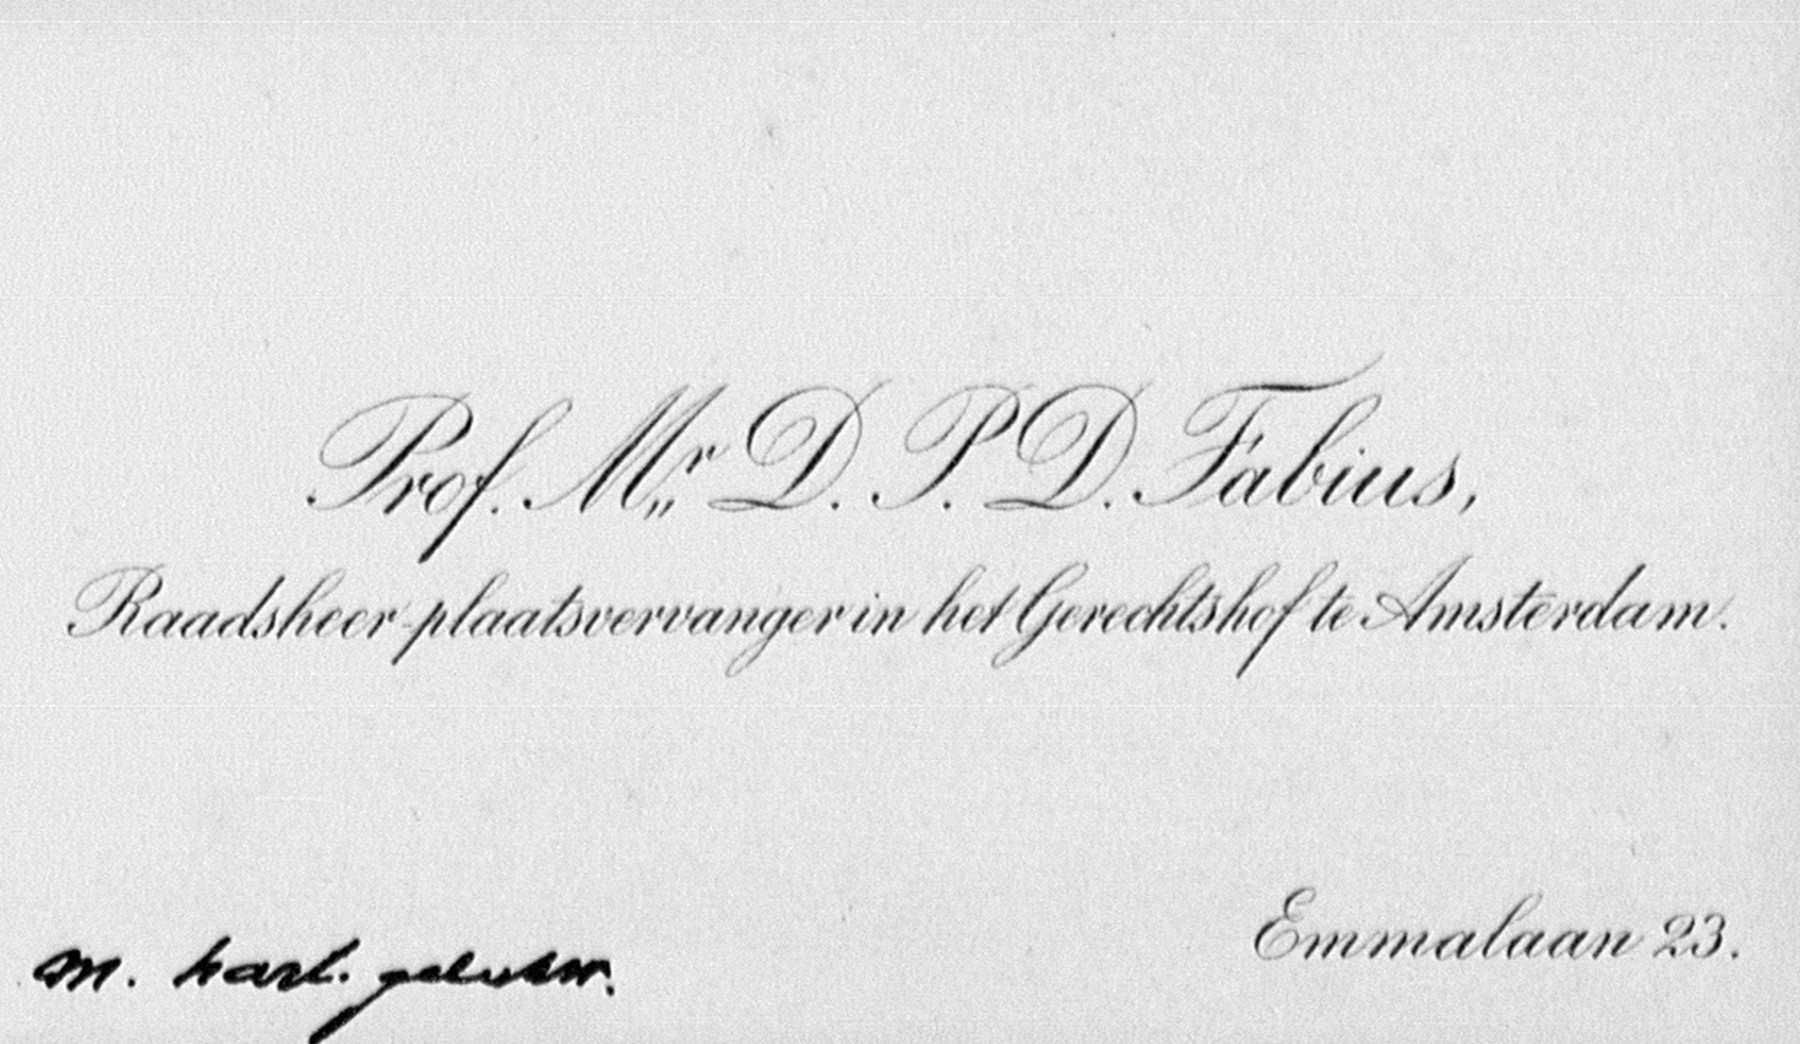 Prof. Mr. D. P. D. Fabius,
Raadsheer-plaatsvervanger in het Gerechtshof te Amsterdam.
Emmalaan 23.
m. hart. gelukw.